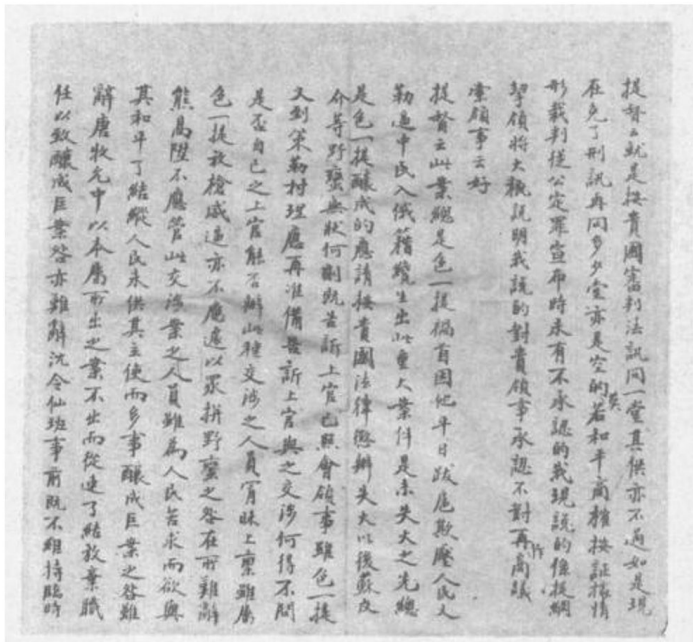 提督云就是按貴國審判法訊问一堂其供亦不过如是現
在免了刑訊再问多少堂亦是空的莫若和平商權按証據情
形裁判從公定罪宣布時未有不承認的我現説的僅提綱
挈領將大概説明我説的對貴領事承認不對再行商議
索領事云好
提督云此案總是色一提禍首因他平日跋扈欺壓人民又
勒逼中民入俄籍纔生出此重大案件是未失火之先總
是色一提釀成的應請按貴國法律懲辦失火以後蘇皮
介等野蠻無狀何副既告訴上官已照會領事雖色一提
又到策勒村理應再准備告訴上官與之交涉何得不問
是否自己之上官能否辦此種交涉之人員冐昧上禀雖屬
色一提放槍威逼亦不應遽以衆拼野蠻之咎在所難辭
熊高陞不應管此交涉案之人員雖為人民苦求而欲與
其和平了結縱人民未供其主使而多事釀成巨案之咎難
辭唐牧允中以本屬所出之案不出而從速了結放棄職
任以致釀成巨案咎亦難辭沈令仙班事前既不維持臨時